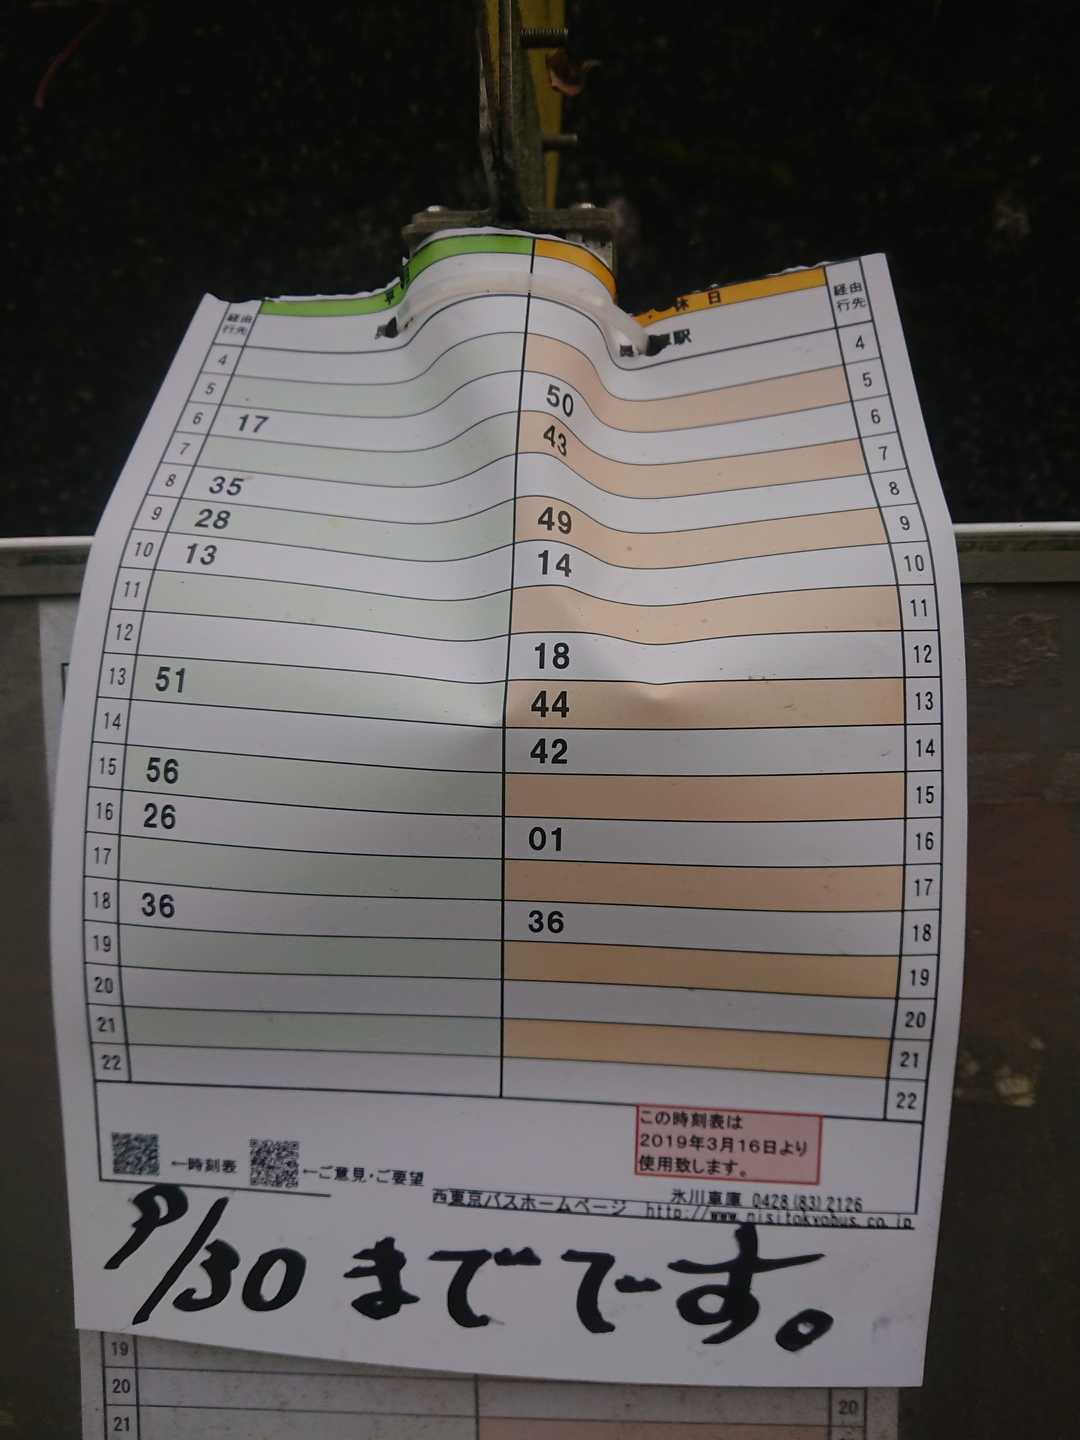 休日
経由
行先
経由
行先
駅
4 4
5 50 5
6 17 43 6
7 7
8 35 49 8
9 28 14 9
10 13 10
11 18 11
12 44 12
13 51 42 13
14 14
15 56 01 15
16 26 16
17 36 17
18 36 18
19 19
20 20
21 21
22 22
この時刻表は
2019年3月16日より
使用致します。
←時刻表 ←ご意見・ご要望
氷川車庫 0428(83)2126
西東京バスホームページ http://www.nisitokyobus.co.jp
9/30 までです。
19
20 20
21